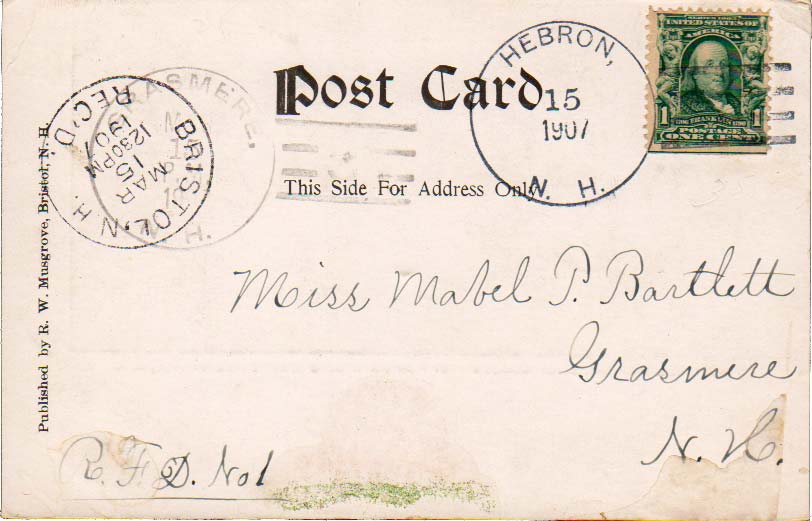 Post Card
This Side For Address Only
HEBRON,
15
1907
N. H.
SERIES 1902
UNITED STATES OF
AMERICA
1 FRANKLIN 1
POSTAGE
ONE CENT
GRASMERE,
N. H.
BRISTOL, N.H.
MAR
15
12:30PM
1907
REC'D
Published by R. W. Musgrove, Bristol, N. H.
Miss Mabel P. Bartlett
Grasmere
N. H.
R. F. D. No 1